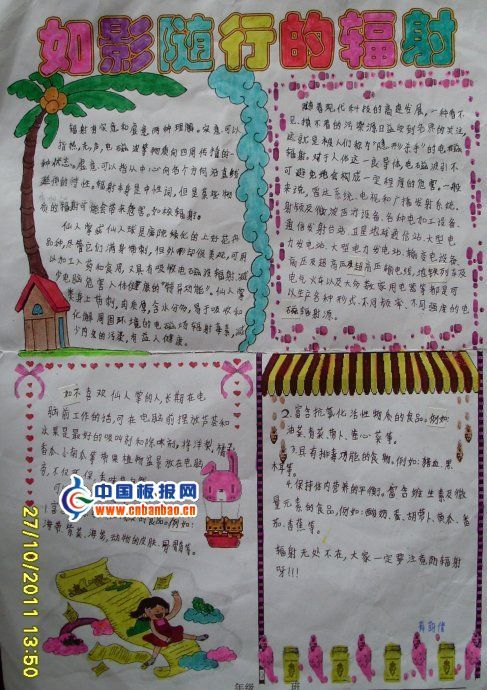 如影随行的辐射
辐射有仅意和展意两种理解。仅意可以
指热、光、声、电磁波等物质向四周传播的一
种状态。展意可以指从中心向各个方向沿直线
延伸的特性。辐射本身是中性词，但是某些物
质的辐射可能会带来危害。如核辐射。
仙人掌或仙人球是庭院绿化的上好花卉
品种，尽管它们满身物刺，但外形却很美观，可用
以加工入药和食用，又具有吸收电磁波辐射，减
少电脑危害人体健康的"特异功能"。仙人掌
类身上物刺，肉质厚，含水分多，易于吸收和
化解周围环境的电磁场辐射毒素，减
少内光的污染，有益人健康。
随着现代科技的高速发展，一种看不
见、摸不着的污染源日益收到各界的关注，
这就是被人们称为"隐形杀手"的电磁
辐射。对于人体这一良导体，电磁波引不
可避免地会构成一定程度的危害，一般
来说，雷达系统、电视和广播发射系统、
射频及微波医疗设备、各种电加工设备、
通信发射台站、卫星地球通信站、大型电
力发电站、大型电力发电站、输变电设备、
高压及超高压及超高压输电线、地铁列车及
电气火车以及大多数家用电器等都是可
以产各种形式、不同频率、不同强度的电
磁辐射源。
如不喜欢仙人掌的人，长期在电
脑前工作的话，可在电脑前摆放芦荟和
水果是最好的吸引剂和除味剂，将洋梨、橘子
脑
中国板报网
www.cnbanbao.cn
的食品。例如：
海带、紫菜、海参，动物的皮肤、骨髓等。
2.富含抗氧化活性物质的食品。例如
油菜、青菜、卷心菜等。
3.具有排毒功能的食物。例如：猪血、黑
木耳等。
4.保持体内营养的平衡。富含维生素及微
量元素的食品，例如：酸奶、蛋、胡萝卜、黄瓜、番
茄、香蕉等。
辐射无处不在，大家一定要注意防辐射
呀!!!
年级
班
27/10/2011 13:50